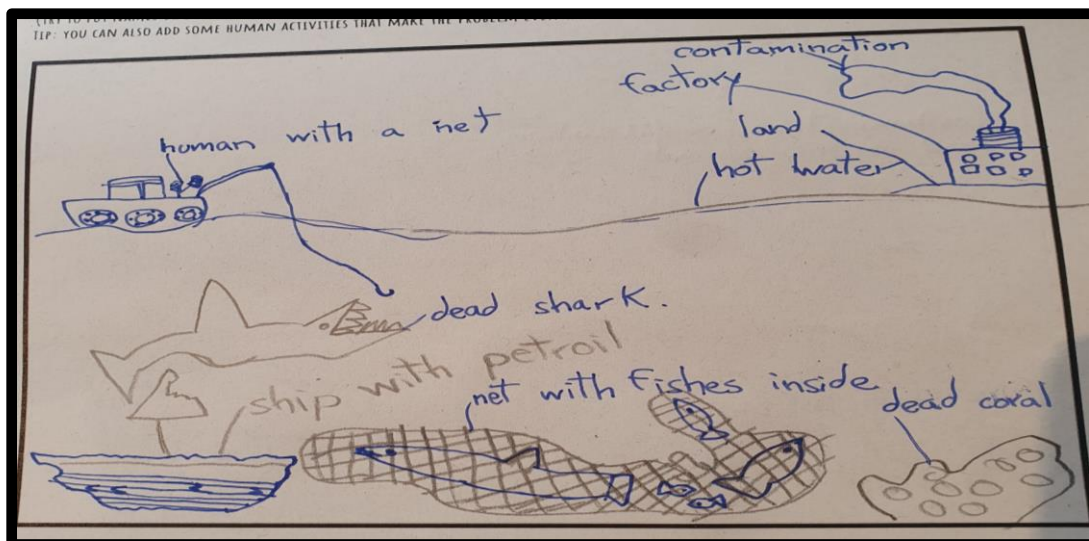 TIP: YOU CAN ALSO ADD SOME HUMAN ACTIVITIES THAT MAKE THE PROBLEM
contamination
factory
human with a net
land
hot water
dead shark.
ship with petroil
net with fishes inside
dead coral